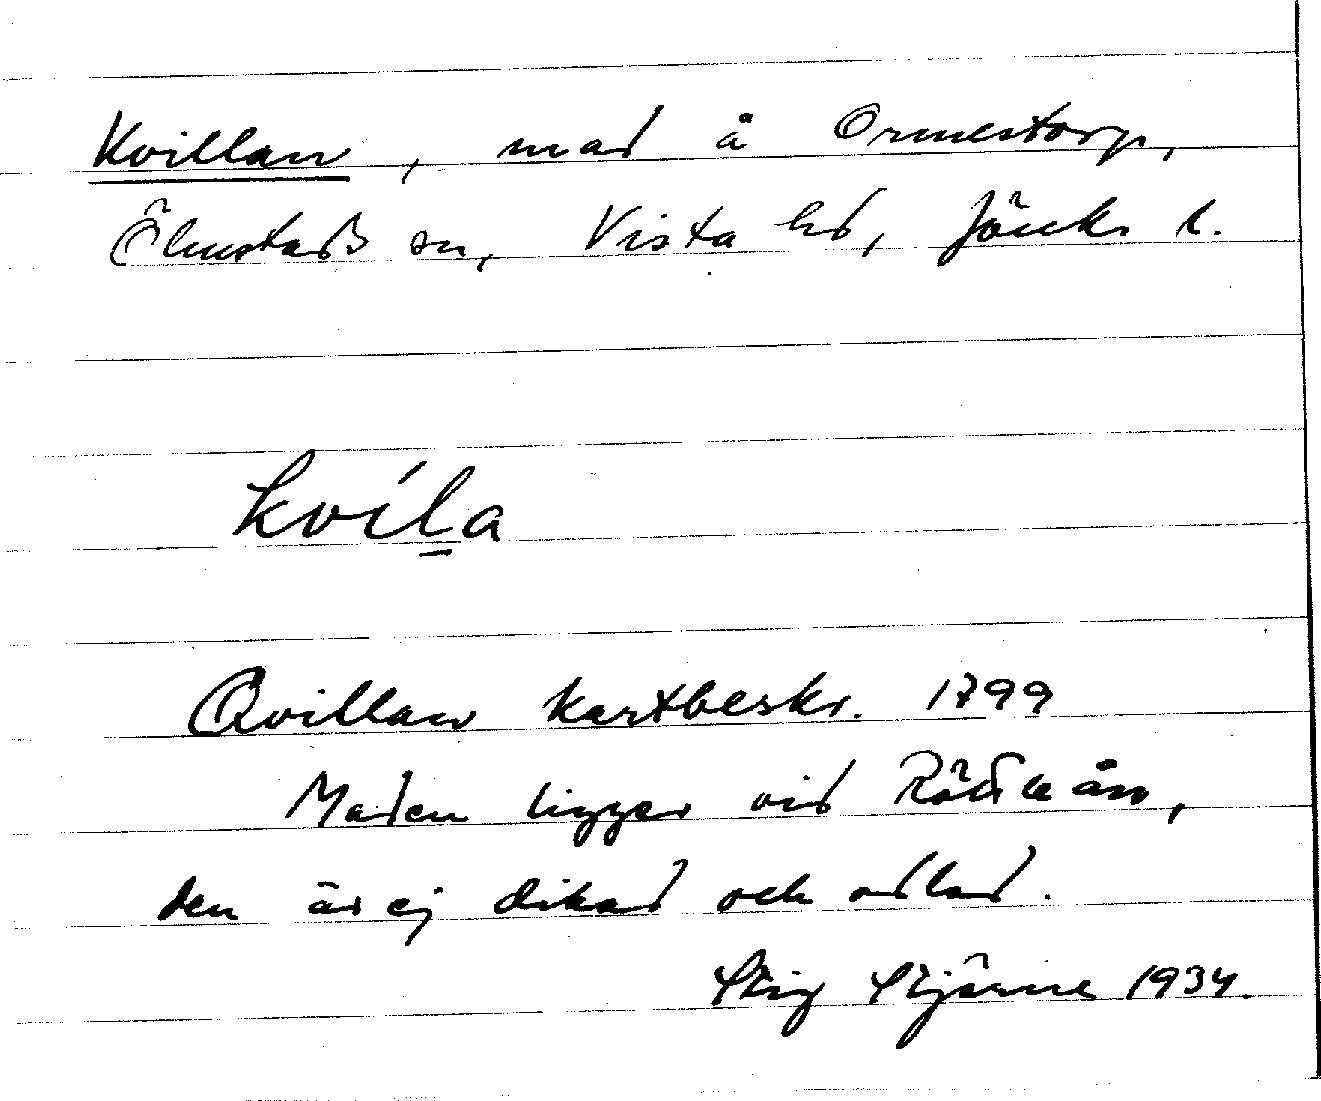 Kvillan, mad å Ormestorp,
Ölmstads sn, Vista hd, Jönk. l.
kvíḻa
Qvillan kartbeskr. 1799
Maden ligger vid Röttleån,
den är ej dikad och odlad.
Stig Stjärne 1934.